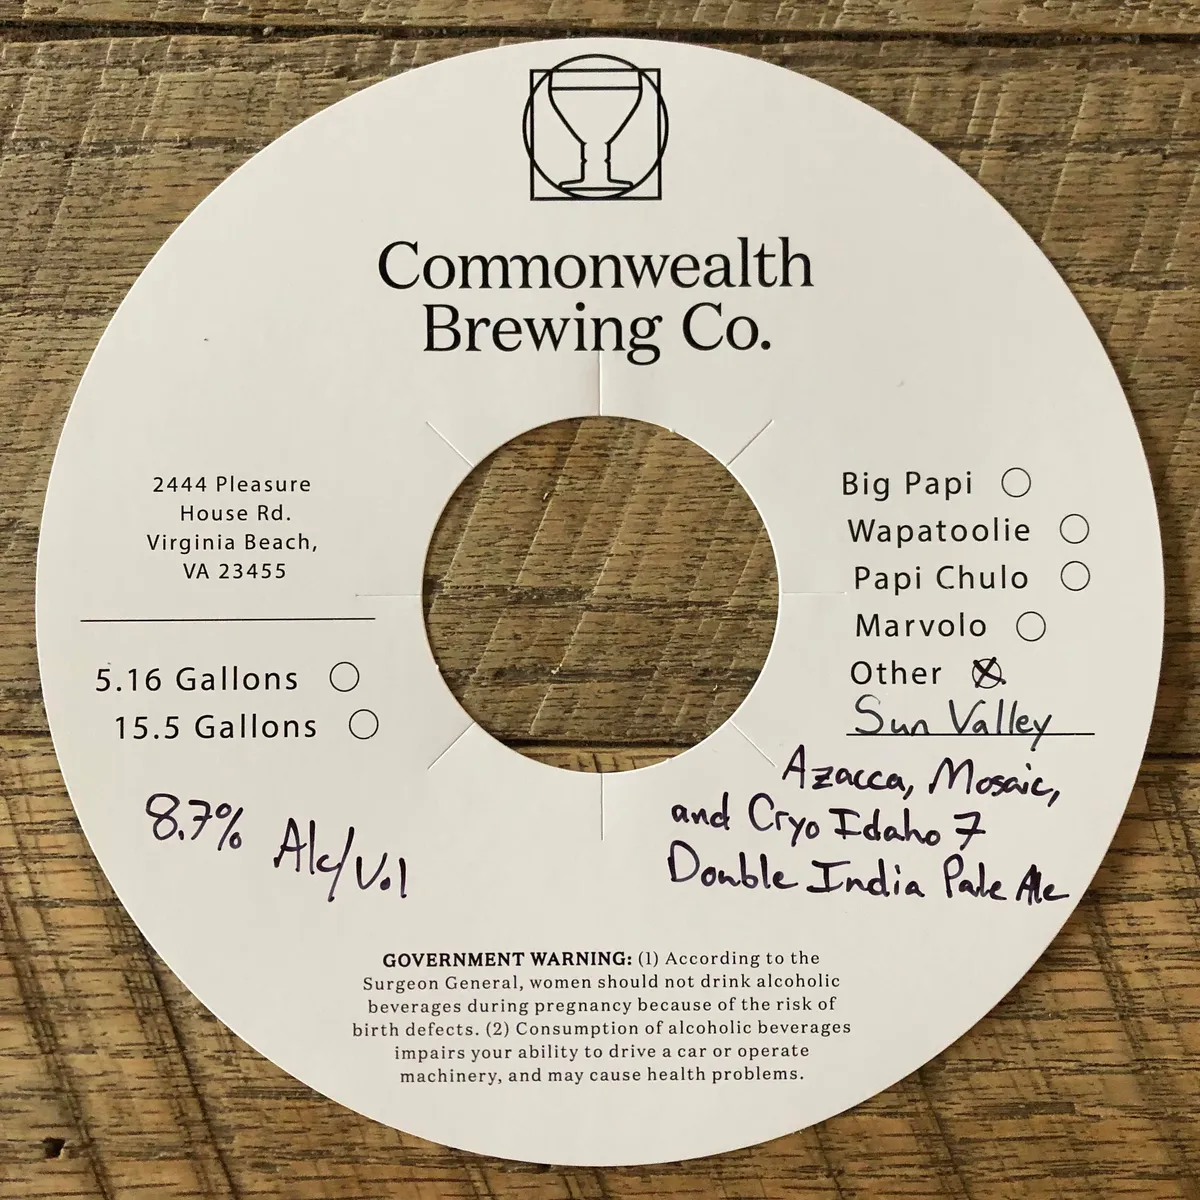 Commonwealth
Brewing Co.
2444 Pleasure
House Rd.
Virginia Beach,
VA 23455
5.16 Gallons
15.5 Gallons
8.7% Alc/Vol
Big Papi
Wapatoolie
Papi Chulo
Marvolo
Other
Sun Valley
Azacca, Mosaic,
and Cryo Idaho 7
Double India Pale Ale
GOVERNMENT WARNING: (1) According to the
Surgeon General, women should not drink alcoholic
beverages during pregnancy because of the risk of
birth defects. (2) Consumption of alcoholic beverages
impairs your ability to drive a car or operate
machinery, and may cause health problems.